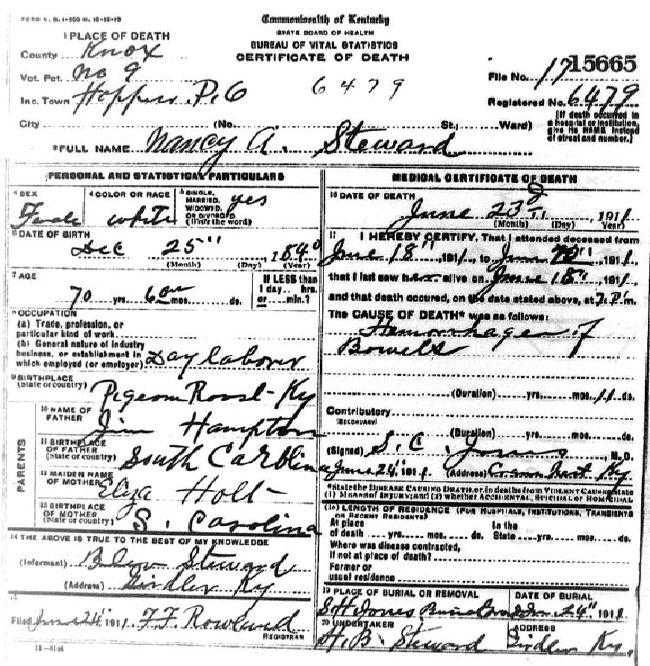 FORM V. S. 1-500 M. 10-18-10
Commonwealth of Kentucky
STATE BOARD OF HEALTH
BUREAU OF VITAL STATISTICS
CERTIFICATE OF DEATH
1 PLACE OF DEATH
County Knox
Vot. Pct. No 9
Inc. Town Hopper P.O
6479
File No. 17 15665
Registered No. 6479
City (No. St.; Ward)
[If death occurred in a hospital or institution, give its NAME instead of street and number.]
2 FULL NAME Nancy A. Steward
PERSONAL AND STATISTICAL PARTICULARS
3 SEX
Female
4 COLOR OR RACE
white
5 SINGLE, MARRIED, WIDOWED, OR DIVORCED
(Write the word)
yes
6 DATE OF BIRTH
Dec 25" 1840
(Month) (Day) (Year)
7 AGE
70 yrs. 6 mos. ds.
If LESS than
1 day, hrs.
or min.?
8 OCCUPATION
(a) Trade, profession, or
particular kind of work
(b) General nature of industry
business, or establishment in
which employed (or employer) Day laborer
9 BIRTHPLACE
(State or country) Pigeon Roost - Ky
PARENTS
10 NAME OF
FATHER Jim Hampton
11 BIRTHPLACE
OF FATHER
(State or country) South Carolina
12 MAIDEN NAME
OF MOTHER Eliza Holt
13 BIRTHPLACE
OF MOTHER
(State or country) S. Carolina
14 THE ABOVE IS TRUE TO THE BEST OF MY KNOWLEDGE
(Informant) Steward
(Address) Ky
15
Filed June 24" 1911 F.F. Rowland
REGISTRAR
11-3146
MEDICAL CERTIFICATE OF DEATH
16 DATE OF DEATH
June 23d, 1911
(Month) (Day) (Year)
17 I HEREBY CERTIFY, That I attended deceased from
June 18" 1911, to June 1911,
that I last saw her alive on June 18" 1911,
and that death occured, on the date stated above, at P. m.
The CAUSE OF DEATH* was as follows:
Hemorrhage of
Bowels
(Duration) yrs. mos. 11 ds.
Contributory
(SECONDARY)
(Duration) yrs. mos. ds.
(Signed) S. C. Jones, M. D.
June 24" 1911 (Address) Ky
*State the DISEASE CAUSING DEATH, or, in deaths from VIOLENT CAUSES, state
(1) MEANS OF INJURY; and (2) whether ACCIDENTAL, SUICIDAL or HOMICIDAL
18 LENGTH OF RESIDENCE (FOR HOSPITALS, INSTITUTIONS, TRANSIENTS
OR RECENT RESIDENTS)
At place
of death yrs. mos. ds.
In the
State yrs. mos. ds.
Where was disease contracted,
if not at place of death?
Former or
usual residence
19 PLACE OF BURIAL OR REMOVAL
Jones
DATE OF BURIAL
24" 1911
20 UNDERTAKER
H. B. Steward
ADDRESS
Ky.